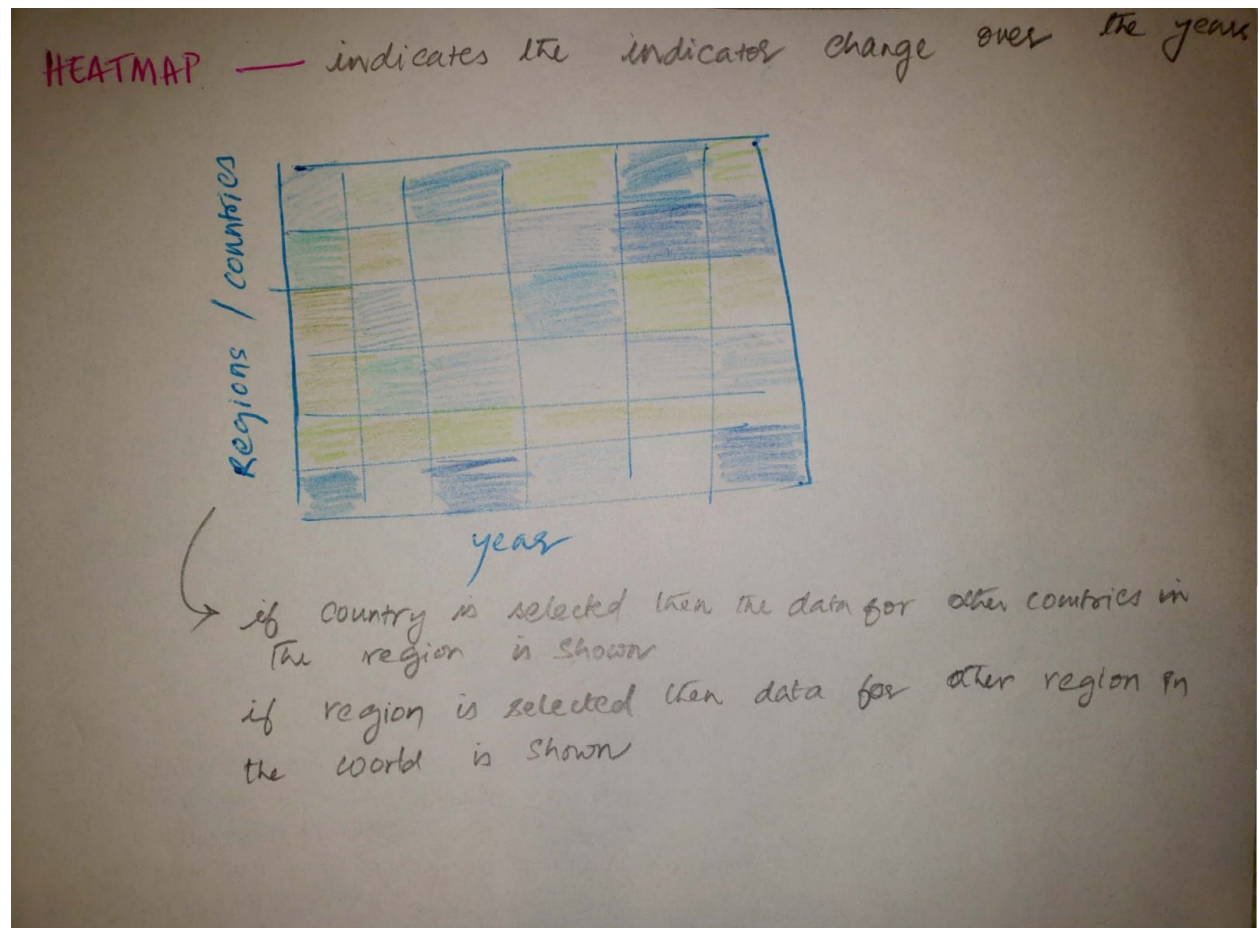 HEATMAP — indicates the indicator change over the years
Regions / countries
year
if country is selected then the data for other countries in
the region is shown
if region is selected then data for other region in
the world is shown